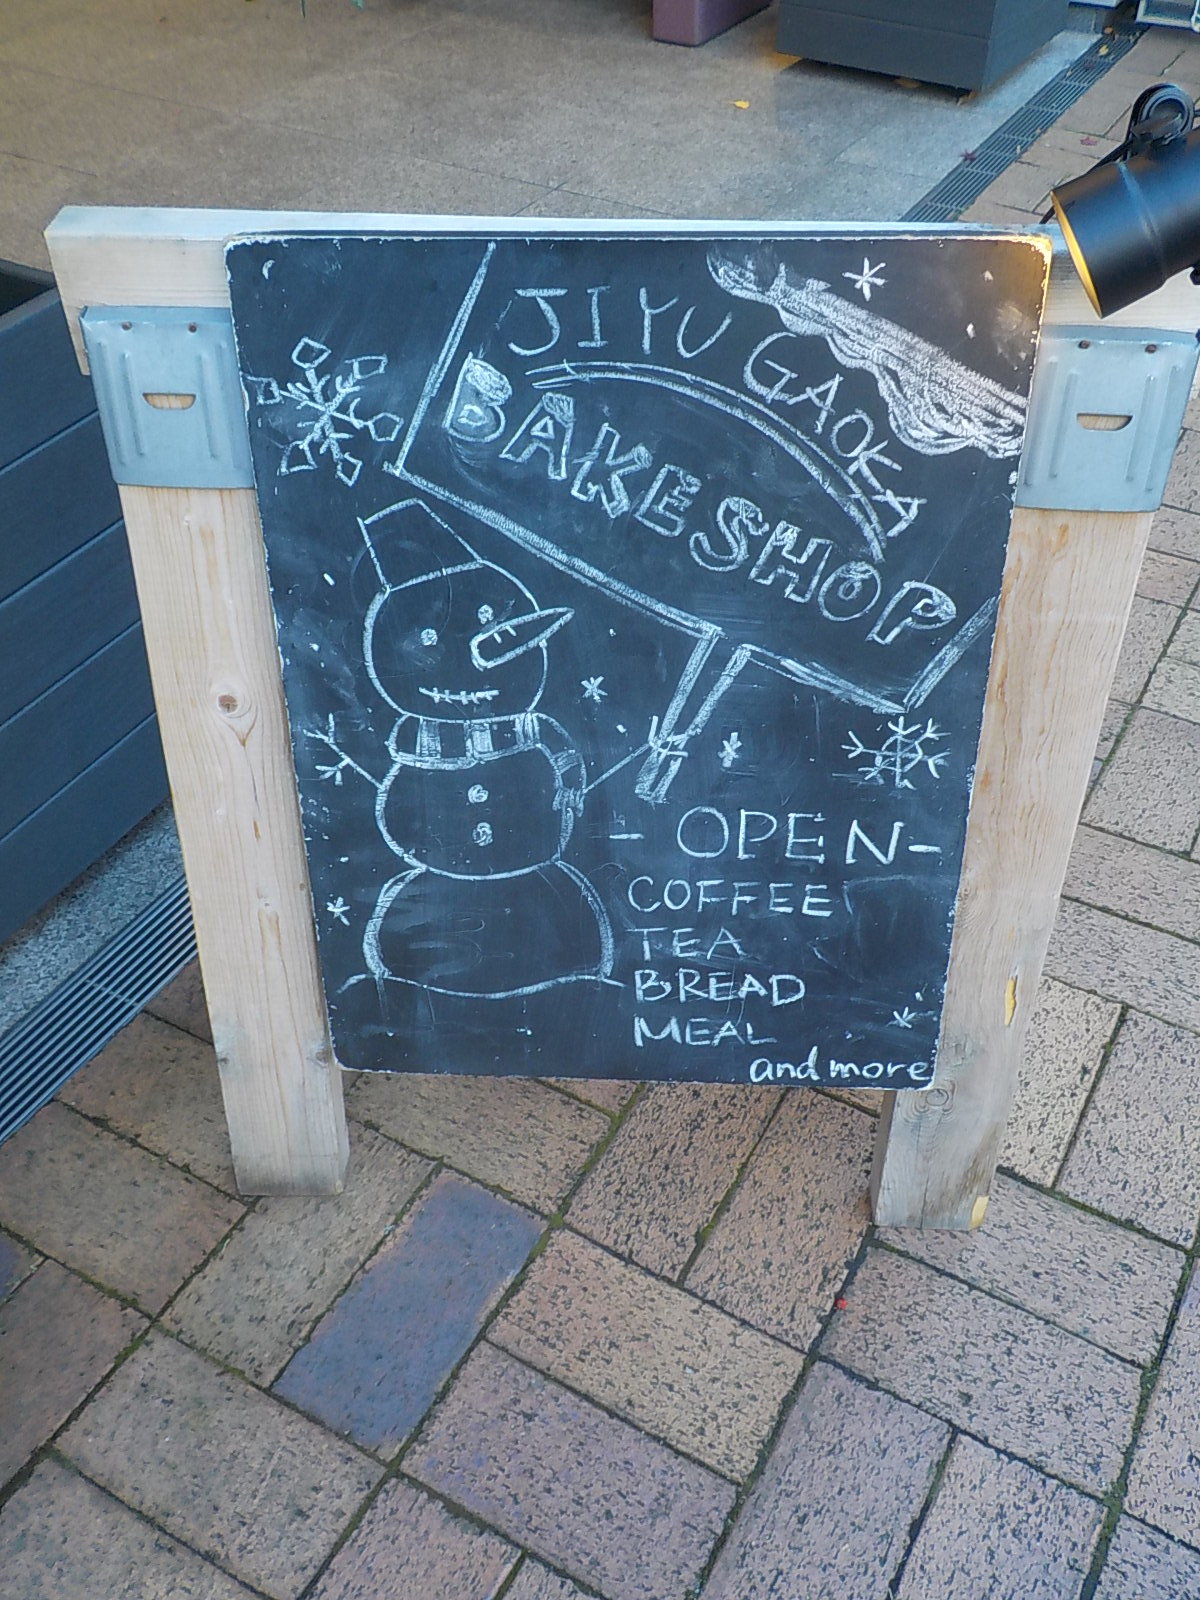 JIYU GAOKA
BAKESHOP
- OPEN-
COFFEE
TEA
BREAD
MEAL
and more